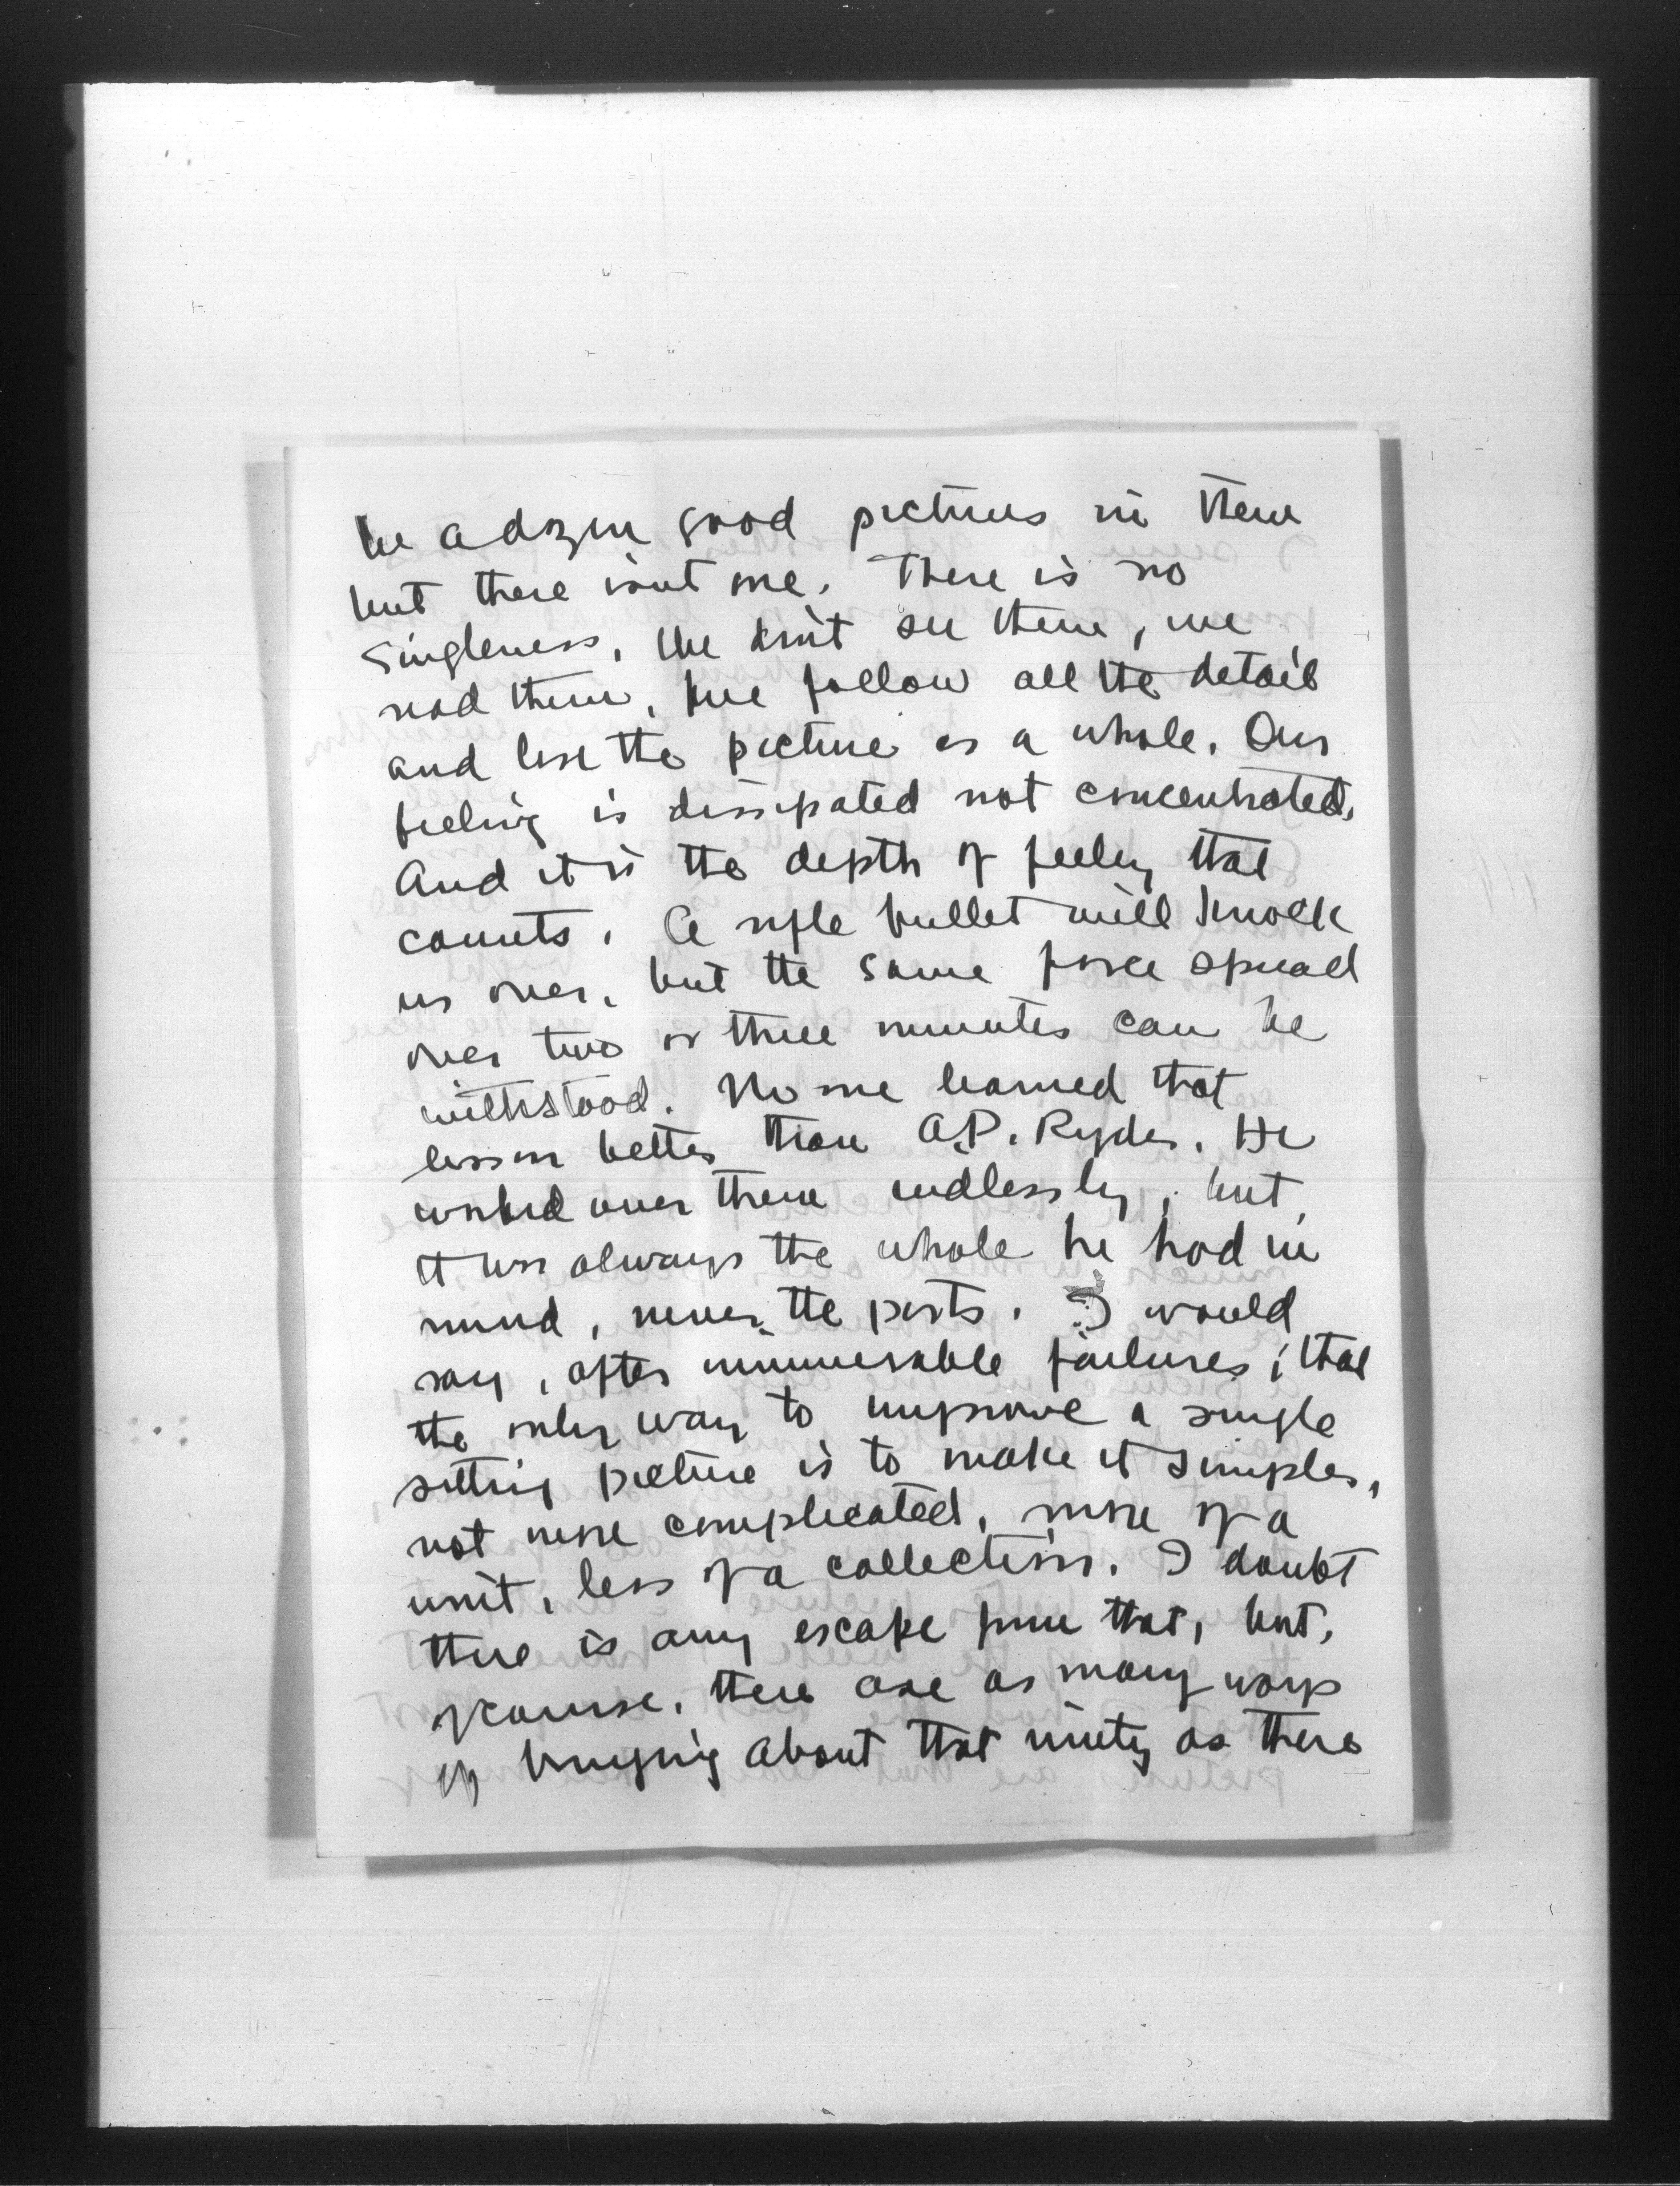 be a dozen good pictures in them
but there isnt one. There is no
singleness. We don't see them, we
read them, we follow all the details
and lose the picture as a whole. Our
feeling is dissipated not concentrated.
And it is the depth of feeling that
counts. A rifle bullet will knock
us over, but the same force spread
over two or three minutes can be
withstood. No one learned that
lesson better than A.P. Ryder. He
worked over them endlessly, but
it was always the whole he had in
mind, never the parts. I would
say, after innumerable failures, that
the only way to improve a single
sitting picture is to make it simpler,
not more complicated, more of a
unit, less of a collection. I doubt
there is any escape from that, but,
of course, there are as many ways
of bringing about that unity as there